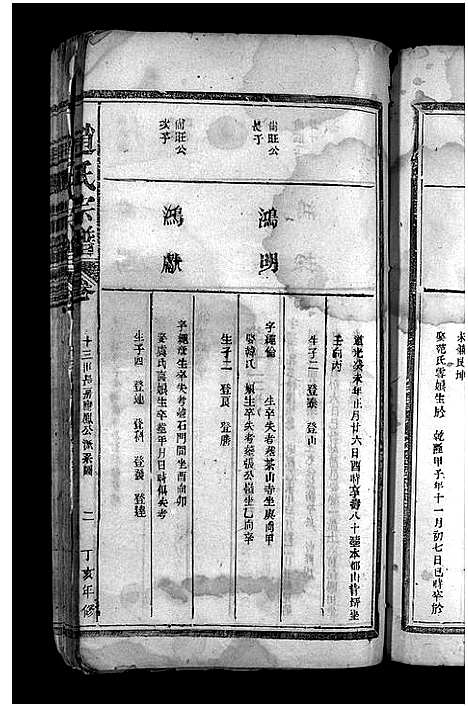 未葬長坤
娶范氏雲娘生於 乾隆甲子年十一月初七日巳時卒於
道光癸未年正月廿六日酉時卒壽八十葬本都山背塀坐
壬向丙
生子二 登泰 登山
尚旺公
長子
鴻明
字繩倫 生卒失考葬茶山寺坐庚向甲
娶韓氏 娘生卒失考葬張公嶺坐乙向辛
生子二 登良 登勝
尚旺公
次子
鴻獻
字繩 生卒失考葬石門間坐酉向卯
娶 氏 娘生卒葬年月日時俱失考
生子四 登連 登科 登發 登達
趙氏宗譜
卷
十三世長房 公派系圖
二
丁亥年修